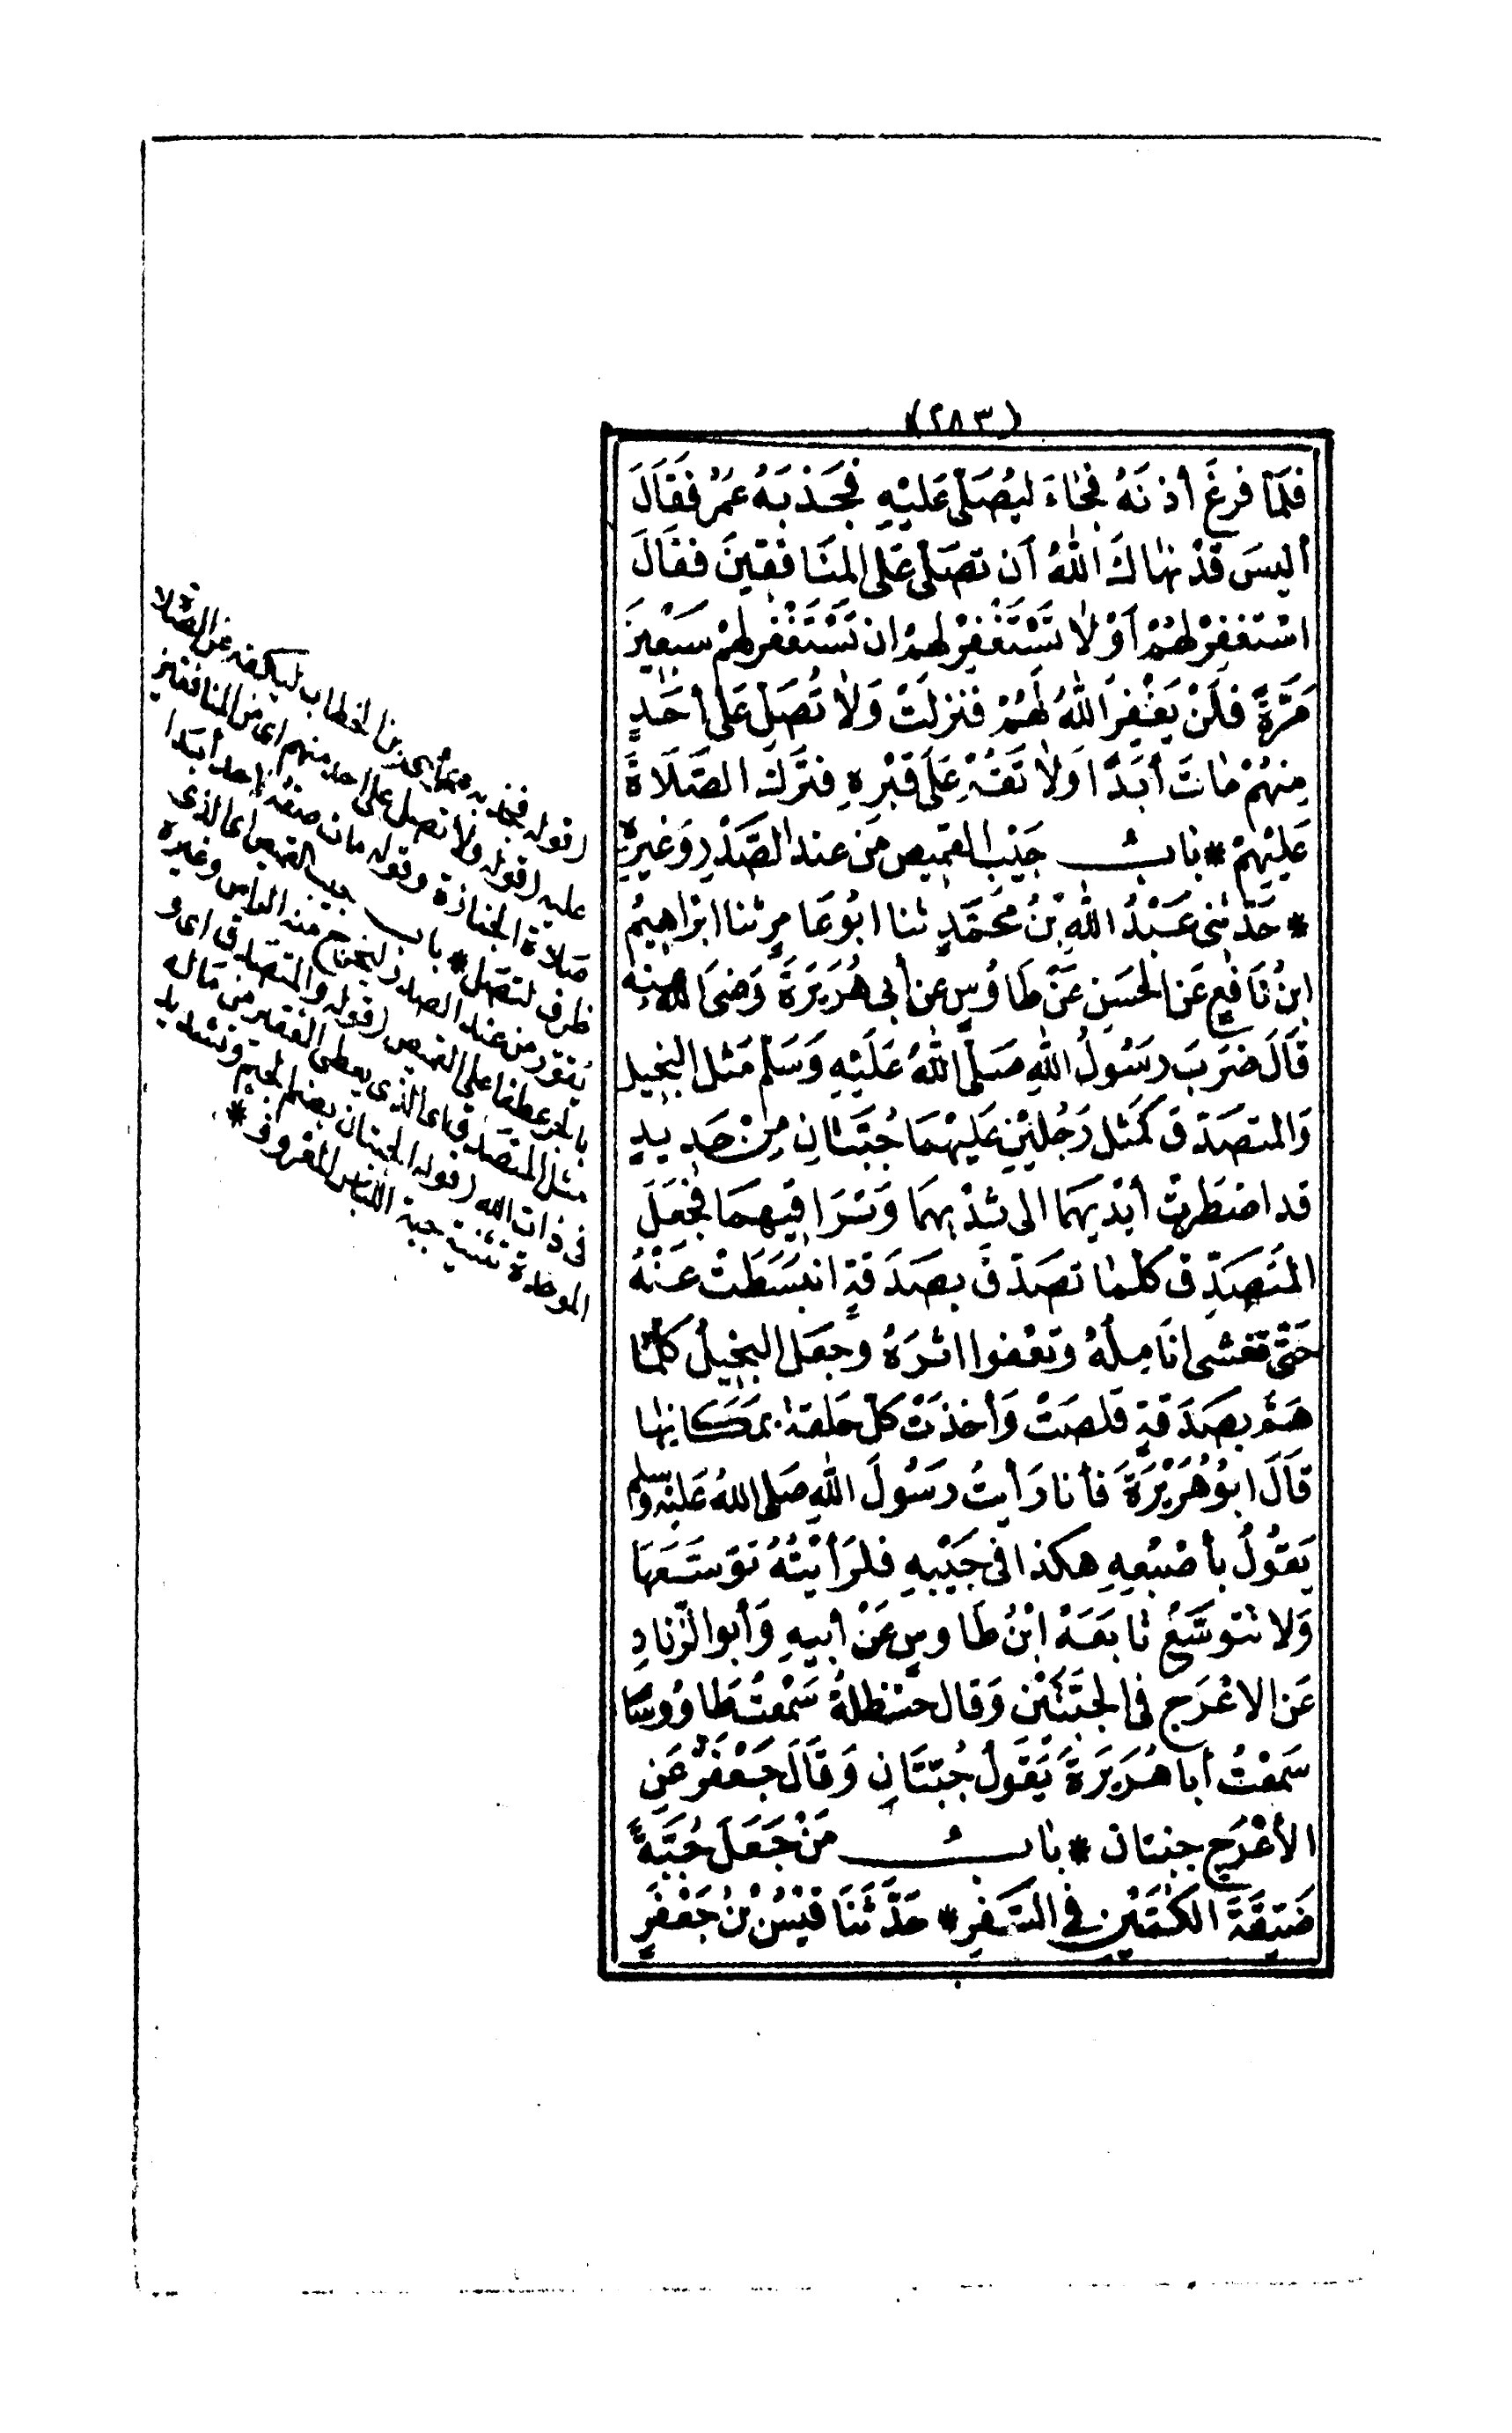 (٢٨٣)
فَلَمَّا فَرَغَ أذنَهُ فجَاءَ ليُصَلىَّ عَليْهِ فَجَذبَهُ عمَرُ فَقَالَ
أليسَ قَدْ نهَاكَ اللهُ أن تصَلىَّ عَلَى المنَافقينَ فقَالَ
اسْتغفِرْ لهُمْ أوْ لاَ تَسْتَغْفِرْ لهمْ ان تَسْتَغْفرْ لهمْ سَبْعِينَ
مَرَّةً فَلَنْ يَغْفِرَ اللهُ لَهُمْ فنزلَتْ وَلاَ تُصَلِّ عَلى أحَدٍ
مِنهُمْ مَاتَ أبَدًا وَلاَ تَقُمْ عَلَى قَبْرِهِ فتَركَ الصَّلَاةَ
عَليْهِمْ * بَابُ جَيْبِ القميصِ مِن عند الصَّدْرِ وَغيرِهِ
* حَدَّثني عَبْدُ اللهِ بْنُ محَمَّدٍ ثنا ابُو عَامِرٍ ثنا ابْرَاهِيمُ
ابنُ نَافِعٍ عَنِ الحَسَنِ عَنْ طَاوُسٍ عن أبى هُرَيرَةَ رَضىَ الله عنه
قَالَ ضَرَبَ رسُولُ اللهِ صَلَّى اللهُ عَلَيْهِ وَسَلَّم مَثل البَخِيل
وَالمتصَدّق كمَثل رَجُليْنِ عَليْهِمَا جُبَّتَانِ مِنْ حَدِيدٍ
قد اضطَرتْ أيْدِيَهمَا الى ثدْيهِمَا وَتَرَاقيهمَا فجَعَلَ
المتَصَدِّق كلمَا تصَدّقَ بصَدَقةٍ انبَسَطَتْ عَنْهُ
حَتَّى تغشى انَامِلهُ وَتعْفوا اثرَهُ وجعَل البَخِيلُ كلمَّا
هَمَّ بصَدَقةٍ قَلصَتْ وَأخذَتْ كلّ حَلقة بمَكَانهَا
قَالَ ابُو هُرَيْرَةَ فَأنا رَأيتُ رسُولَ اللهِ صَلى اللهُ عَليْهِ وسلم
يَقُولُ بأصْبعِهِ هكذا فى جَيْبهِ فلوْ رَأيْتُهُ يوَسّعَهَا
وَلا تتوسَّعُ تَابَعَهُ ابْنُ طَاوسٍ عَنْ أبيهِ وَأبو الزّنادِ
عَن الاعْرَجِ فى الجبَّتَيْن وَقال حنظلةُ سَمْعتُ طَاوُوسًا
سَمعْتُ أبا هُرَيرَةَ يَقولُ جُبّتَانِ وَقَالَ جَعْفرٌ عَنِ
الأعْرَجِ جنتان * بَابُ مَنْ جَعَلَ جُبَّةً
ضَيّقَةَ الكمَّيْنِ فى السَّفرِ * حَدَّثَنَا قيْسُ بْنُ جَعْفَرٍ
(قوله فجذبه عمر) أى بن الخطاب ليكفه عن الصلاة
عليه (قوله ولا تصل على احد منهم) اى من المنافقين
صَلاة الجنازة وقوله مات صفة لاحد أبدا
ظرف لتصل * باب جيب القميص اى الذى
يقور من عند الصدر ليخرج منه الراس وغيره
بالجر عطفا على القميص (قوله والمتصدق) اى و
مثل المتصدق اى الذى يعطى الفقير من ماله
فى ذات الله (قوله الجبتان) بضم الجيم وتشديد
الموحدة تثنية جبة اللباس المعروف *